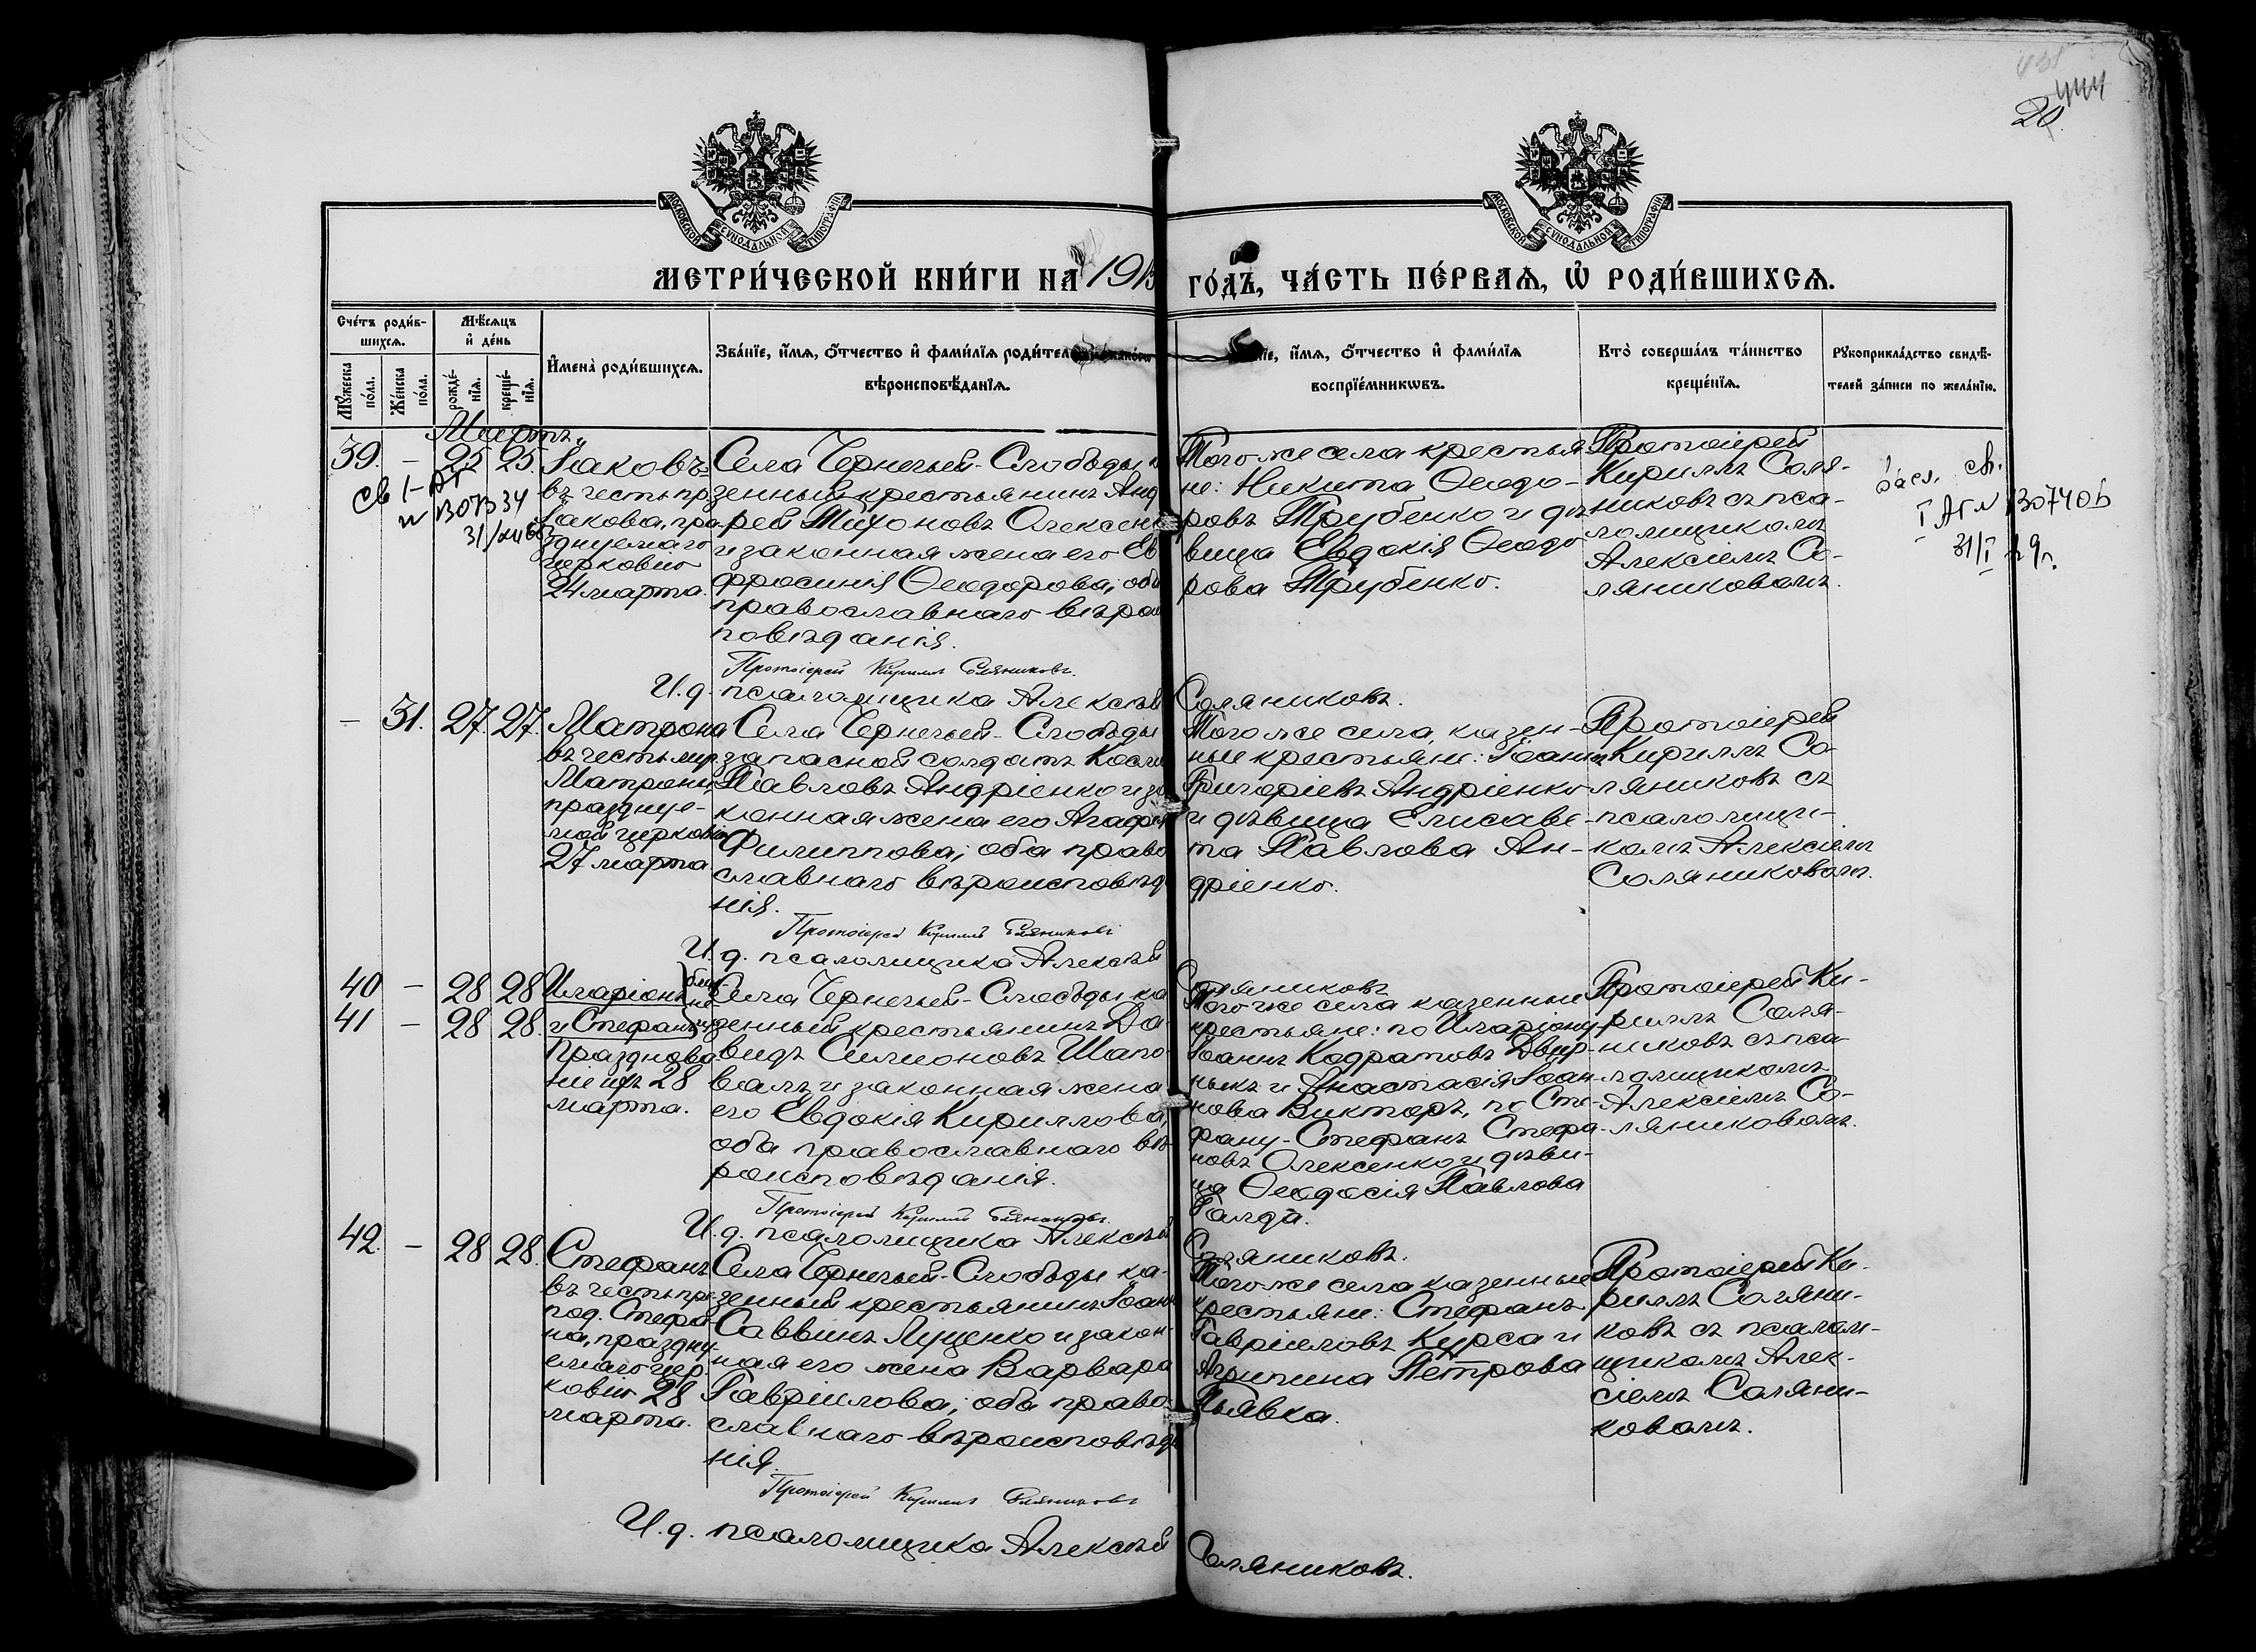 444
20.
МОСКОВСКОЙ СѴНОДАЛЬНОЙ ТИПОГРАФІИ
МОСКОВСКОЙ СѴНОДАЛЬНОЙ ТИПОГРАФІИ
МЕТРИ́ЧЕСКОЙ КНИ́ГИ НА 191
ГО́ДЪ, ЧА́СТЬ ПЕ́РВАѦ, Ѡ҆ РОДИ́ВШИХСѦ.
Сче́тъ роди́в-
шихсѧ.
Мꙋ́жеска
по́ла.
Же́нска
по́ла.
Мѣ́сѧцъ
и҆ де́нь
рожде́-
нїѧ.
креще́-
нїѧ.
И҆мена̀ роди́вшихсѧ.
Зва́нїе, и҆́мѧ, ѻ҆́тчество и҆ фами́лїѧ роди́тел
вѣроисповѣ́данїѧ.
и҆́мѧ, ѻ҆́тчество и҆ фами́лїѧ
воспрїе́мникѡвъ.
Кто̀ соверша́лъ та́инство
креще́нїѧ.
Рꙋкоприкла́дство свидѣ́-
телей за́писи по жела́нїю.
Мартъ.
39. – 25 25.
Іаковъ
въ честь пр.
Іакова, пра-
зднуемаго
церковію
24 марта.
Села Чернечьей-Слободы
зенный крестьянинъ Анд
рей Тихоновъ Олексен
и законная жена его Ев
фросинія Ѳеодорова; оба
православнаго вѣрои
повѣданія.
Того же села крестья
не: Никита Ѳеодо-
ровъ Трубенко и дѣ
вица Евдокія Ѳеодо
рова Трубенко.
Протоіерей
Кириллъ Соля-
никовъ съ пса-
ломщикомъ
Алексіемъ Со-
ляниковымъ.
св.
31/I 29 г.
Протоіерей Кириллъ Соляниковъ.
И. д. псаломщика Алексѣй Соляниковъ.
– 31. 27. 27.
Матрона
въ честь мр.
Матроны,
празднуе-
мой церковію
27 марта
Села Чернечьей-Слободы
запасной солдатъ Косма
Павловъ Андріенко и за
конная жена его Агафія
Филиппова; оба право
славнаго вѣроисповѣда
нія.
Того же села, казен-
ные крестьяне: Іоаннъ
Григоріевъ Андріенко
и дѣвица Елисаве-
та Павлова Ан-
дріенко.
Протоіерей
Кириллъ Со-
ляниковъ съ
псаломщи-
комъ Алексіемъ
Соляниковымъ.
Протоіерей Кириллъ Соляниковъ
И. д. псаломщика Алексѣй Соляниковъ
40 – 28 28
41 – 28 28.
Иларіонъ
и Стефанъ
Празднова-
ніе ихъ 28
марта.
Села Чернечьей-Слободы ка
зенный крестьянинъ Да-
видъ Симеоновъ Шапо-
валъ и законная жена
его Евдокія Кириллова,
оба православнаго вѣ-
роисповѣданія.
Того же села казенные
крестьяне: по Иларіону
Іоаннъ Кодратовъ Двир-
ныкъ и Анастасія Іоан-
нова Викторъ, по Сте-
фану - Стефанъ Стефа-
новъ Олексенко и дѣви-
ца Ѳеодосія Павлова
Галда.
Протоіерей Ки-
риллъ Соля-
никовъ съ пса-
ломщикомъ
Алексіемъ Со-
ляниковымъ.
Протоіерей Кириллъ Соляниковъ.
И. д. псаломщика Алексѣй Соляниковъ.
42. – 28 28.
Стефанъ
въ честь пре-
под. Стефа-
на, праздну-
емаго цер-
ковію 28
марта.
Села Чернечьей-Слободы ка-
зенный крестьянинъ Іоаннъ
Саввинъ Луценко и закон-
ная его жена Варвара
Гавріилова; оба право-
славнаго вѣроисповѣда
нія.
Того же села казенные
крестьяне: Стефанъ
Гавріиловъ Курса и
Агрипина Петрова
Пьявка.
Протоіерей Ки-
риллъ Соляни-
ковъ съ псалом-
щикомъ Алек-
сіемъ Соляни-
ковымъ.
Протоіерей Кириллъ Соляниковъ
И. д. псаломщика Алексѣй Соляниковъ.